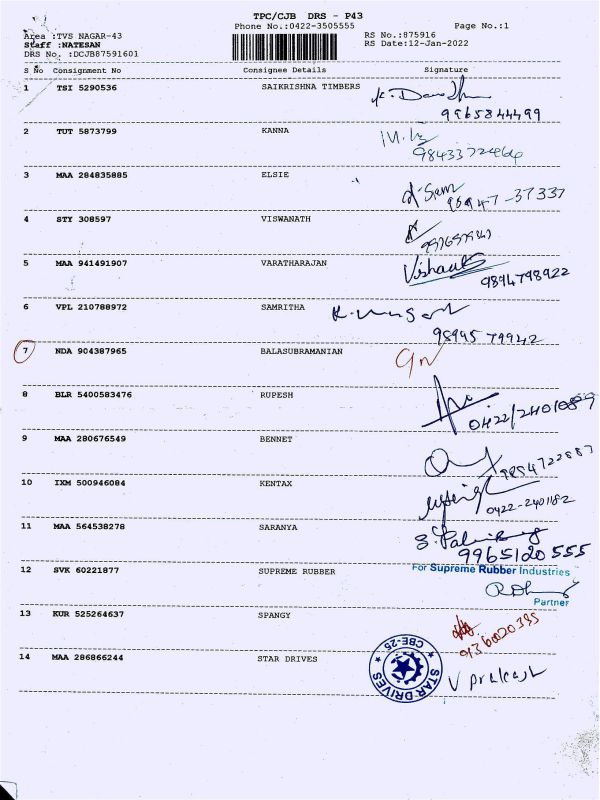 TPC/CJB DRS - P43
Phone No.:0422-3505555 Page No.:1
Area :TVS NAGAR-43 RS No.:875916
Staff :NATESAN RS Date:12-Jan-2022
DRS No. :DCJB87591601
S No Consignment No Consignee Details Signature
1 TSI 5290536 SAIKRISHNA TIMBERS
9965844499
2 TUT 5873799 KANNA
3 MAA 284835885 ELSIE
4 STY 308597 VISWANATH
5 MAA 941491907 VARATHARAJAN
9894798922
6 VPL 210788972 SAMRITHA
7 NDA 904387965 BALASUBRAMANIAN
8 BLR 5400583476 RUPESH
0422/2401089
9 MAA 280676549 BENNET
10 IXM 500946084 KENTAX
0422-2401182
11 MAA 564538278 SARANYA
9965120555
12 SVK 60221877 SUPREME RUBBER For Supreme Rubber Industries
Partner
13 KUR 525264637 SPANGY
14 MAA 286866244 STAR DRIVES
STAR DRIVES CBE-25
V Prakash